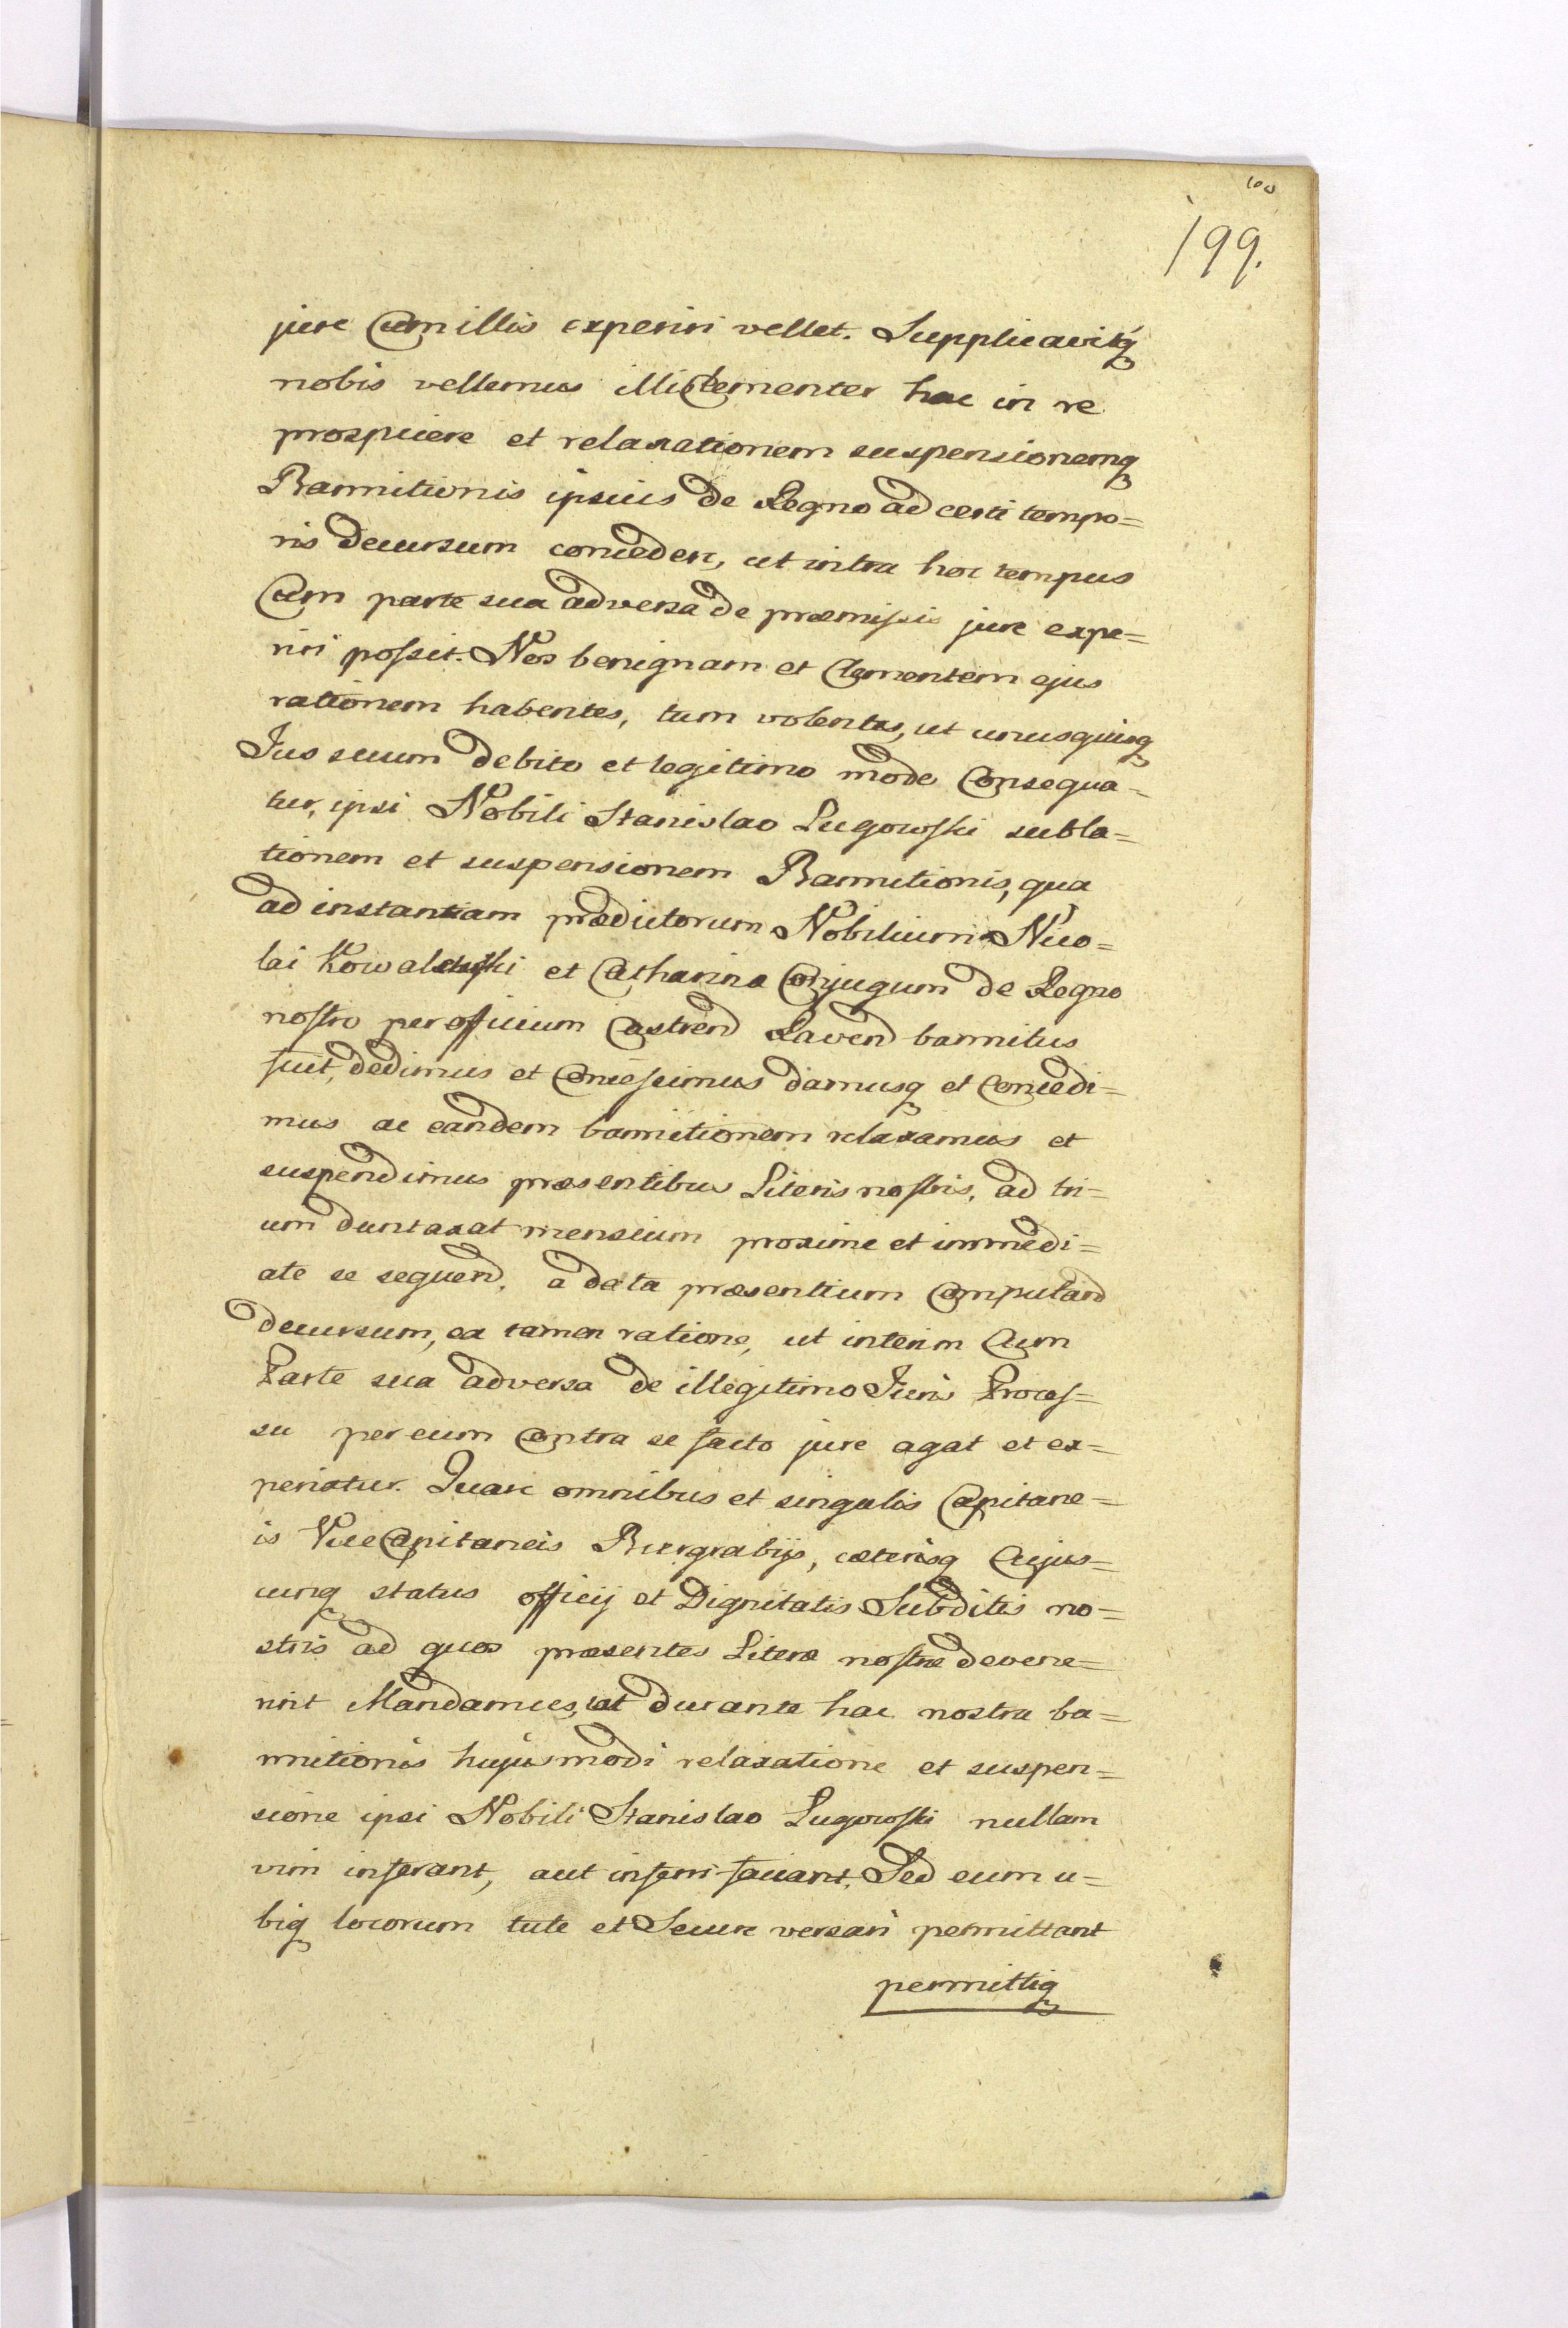 100
199.
jure Cum illis experiri vellet. Supplicavitq́
nobis vellemus illi Clementer hac in re
prospicere et relaxationem suspensionemq
Bannitionis ipsius de Regno ad certi tempo=
ris decursum concedere, ut intra hoc tempus
Cum parte sua adversa de præmissis jure expe=
riri possit. Nos benignam et Clementem ejus
rationem habentes, tum volentes, ut unusquisq
Jus suum debito et legitimo modo Consequa=
tur, ipsi Nobili Stanislao Lugowski subla=
tionem et suspensionem Bannitionis, qua
ad instantiam prædictorum Nobilium Nico=
lai et Catharina Conjugum de Regno
nostro per officium Castren Raven bannitus
fuit, dedimus et Concessimus damusq et Concedi=
mus ac eandem bannitionem relaxamus et
suspendimus præsentibus Literis nostris, ad tri=
um duntaxat mensium proxime et immedi=
ate se sequen. a data præsentium Computand
decursum, ea tamen ratione, ut interim Cum
Parte sua adversa de illegitimo Juris Proces=
su per eum Contra se facto jure agat et ex=
periatur. Quare omnibus et singulis Capitane=
is ViceCapitaneis Burgrabijs, cæterisq Cujus=
cunq status officij et Dignitatis Subditis no=
stris ad quos præsentes Literæ nostræ devene=
rint Mandamus, ut durante hac nostra ba=
nnitionis hujusmodi relaxatione et suspen=
sione ipsi Nobili Stanislao Lugowski nullam
vim inferant, aut inferri faciant. Sed eum u=
biq locorum tute et Secure versari permittant
permittiq